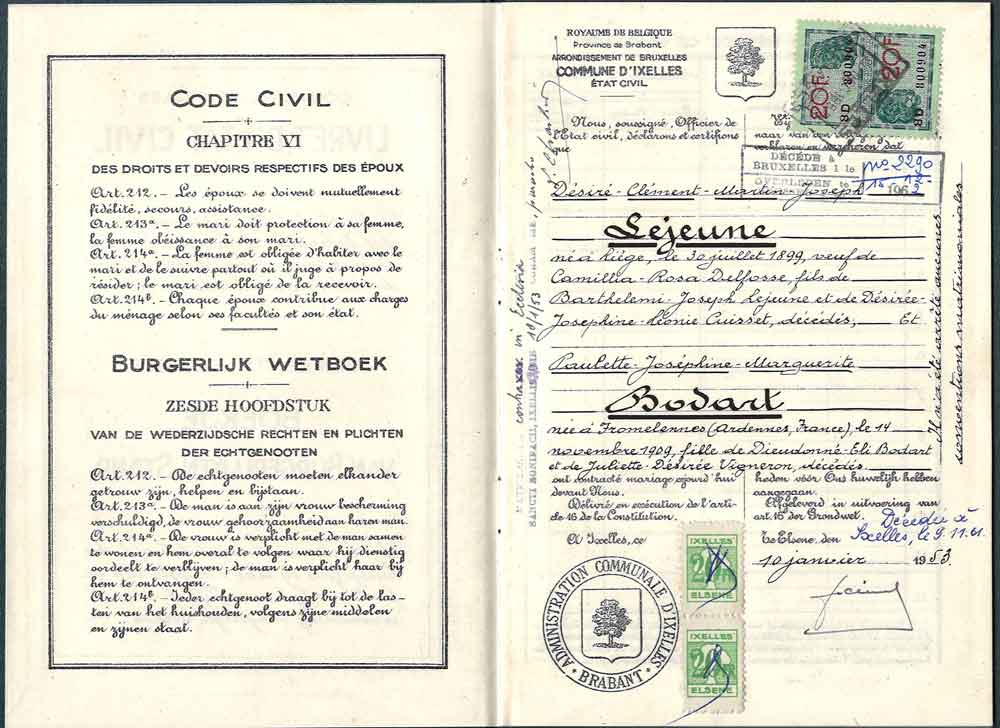 CODE CIVIL
CHAPITRE VI
DES DROITS ET DEVOIRS RESPECTIFS DES ÉPOUX
Art. 212. - Les époux se doivent mutuellement
fidélité, secours, assistance.
Art. 213ª. - Le mari doit protection à sa femme,
la femme obéissance à son mari.
Art. 214ª. - La femme est obligée d'habiter avec le
mari et de le suivre partout où il juge à propos de
résider; le mari est obligé de la recevoir.
Art. 214ᵇ. - Chaque époux contribue aux charges
du ménage selon ses facultés et son état.
BURGERLIJK WETBOEK
ZESDE HOOFDSTUK
VAN DE WEDERZIJDSCHE RECHTEN EN PLICHTEN
DER ECHTGENOOTEN
Art. 212. - De echtgenooten moeten elkander
getrouw zijn, helpen en bijstaan.
Art. 213ª. - De man is aan zijn vrouw bescherming
verschuldigd, de vrouw gehoorzaamheid aan haren man.
Art. 214ª. - De vrouw is verplicht met de man samen
te wonen en hem overal te volgen waar hij dienstig
oordeelt te verblijven; de man is verplicht haar bij
hem te ontvangen.
Art. 214ᵇ. - Ieder echtgenoot draagt bij tot de las-
ten van het huishouden, volgens zijne middelen
en zijnen staat.
ROYAUME DE BELGIQUE
Province de Brabant
ARRONDISSEMENT DE BRUXELLES
COMMUNE D'IXELLES
ÉTAT CIVIL
20F.
8D 800904
20F
8D 800904
Nous, soussigné, Officier de
État civil, déclarons et certifions
que
naar van den
verklaren en dat
DÉCÉDÉ à
BRUXELLES 1 le
OVERLEDEN te
no 2290
196
Désiré-Clément-Martin-Joseph
Lejeune
né à Liège, le 30 juillet 1899, veuf de
Camillia-Rosa Delfosse, fils de
Barthelemi-Joseph Lejeune et de Désirée-
Josephine-Léonie Cuisset, décédés, Et
Paulette-Joséphine-Marguerite
Bodart
née à Fromelennes (Ardennes, France), le 14
novembre 1909, fille de Dieudonné-Eli Bodart
et de Juliette-Désirée Vigneron, décédés.
ont contracté mariage, ejourd'hui
devant Nous.
Délivré en exécution de l'arti-
cle 16 de la Constitution.
heden vóór Ons huwelijk hebben
aangegaan.
Afgeleverd in uitvoering van
art. 16 der Grondwet.
A Ixelles, ce
te Elsene, den
10 janvier 1953.
Décédée à
Ixelles, le 9.11.61
Il n'a été arrêté aucunes
conventions matrimoniales
in Ecclesia
SANCTI BONIFACII, IXELLIS DIE 10/1/53
IXELLES
20
ELSENE
IXELLES
20
ELSENE
ADMINISTRATION COMMUNALE D'IXELLES
BRABANT